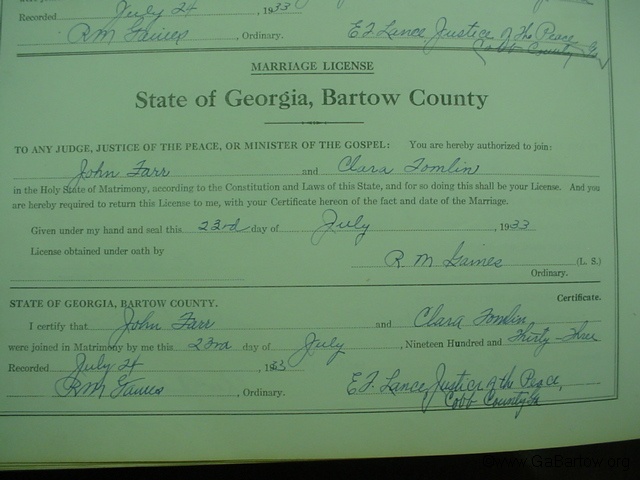 Recorded July 24, 1933
RM Gaines, Ordinary. E.J. Lance Justice of the Peace
Cobb County Ga
MARRIAGE LICENSE
State of Georgia, Bartow County
TO ANY JUDGE, JUSTICE OF THE PEACE, OR MINISTER OF THE GOSPEL: You are hereby authorized to join:
John Farr and Clara Tomlin
in the Holy State of Matrimony, according to the Constitution and Laws of this State, and for so doing this shall be your License. And you
are hereby required to return this License to me, with your Certificate hereon of the fact and date of the Marriage.
Given under my hand and seal this 23rd day of July, 1933
License obtained under oath by
R. M Gaines (L. S.)
Ordinary.
STATE OF GEORGIA, BARTOW COUNTY. Certificate.
I certify that John Farr and Clara Tomlin
were joined in Matrimony by me this 23rd day of July, Nineteen Hundred and Thirty-Three
Recorded July 24, 1933
RM Gaines, Ordinary. E.J. Lance Justice of the Peace,
Cobb County Ga
www.GaBartow.org